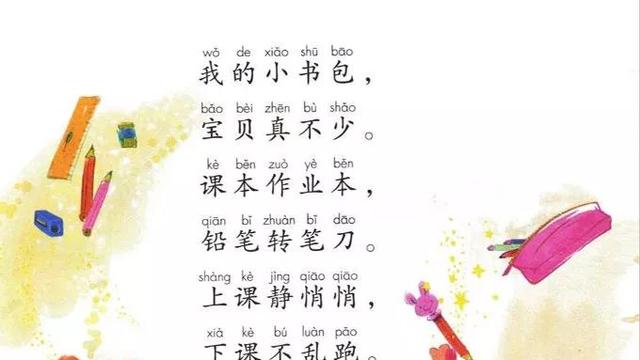 wǒ de xiǎo shū bāo
我的小书包，
bǎo bèi zhēn bù shǎo
宝贝真不少。
kè běn zuò yè běn
课本作业本，
qiān bǐ zhuàn bǐ dāo
铅笔转笔刀。
shàng kè jìng qiāo qiāo
上课静悄悄，
xià kè bú luàn pǎo
下课不乱跑。